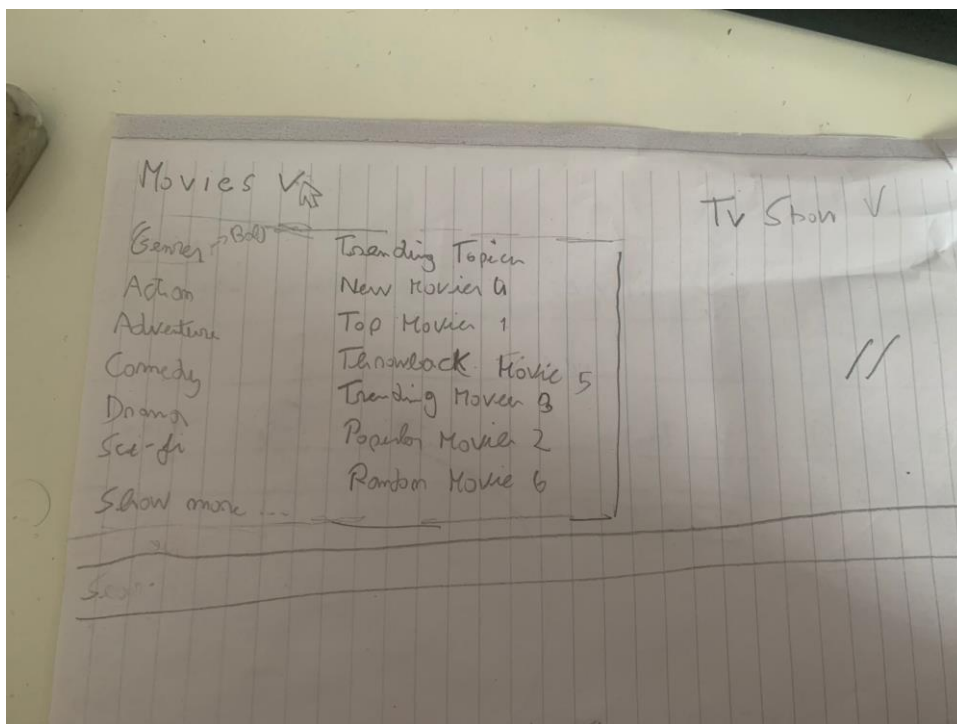 Movies V
Tv Show V
Genres → Bold
Action
Adventure
Comedy
Drama
Sci-fi
Show more ...
Trending Topics
New Movies 4
Top Movies 1
Throwback Movie 5
Trending Movies 3
Popular Movies 2
Random Movie 6
//